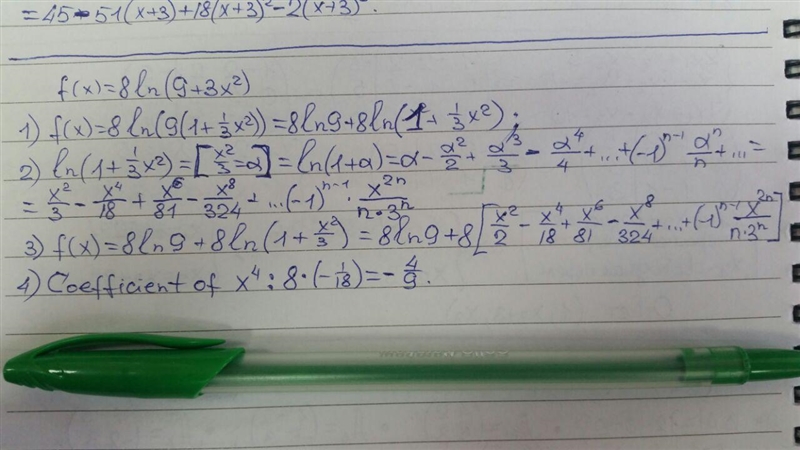 =45-51(x+3)+18(x+3)²-2(x+3)³.
f(x)=8ln(9+3x²)
1) f(x)=8ln(9(1+⅓x²))=8ln9+8ln(1+⅓x²);
2) ln(1+⅓x²)=[x²/3=α]=ln(1+α)=α-α²/2+α³/3-α⁴/4+...+(-1)ⁿ⁻¹ αⁿ/n+...=
=x²/3-x⁴/18+x⁶/81-x⁸/324+...(-1)ⁿ⁻¹·x²ⁿ/(n·3ⁿ)
3) f(x)=8ln9+8ln(1+x²/3)=8ln9+8[x²/2-x⁴/18+x⁶/81-x⁸/324+...+(-1)ⁿ⁻¹x²ⁿ/(n·3ⁿ)]
4) Coefficient of x⁴: 8·(-1/18)=-4/9.